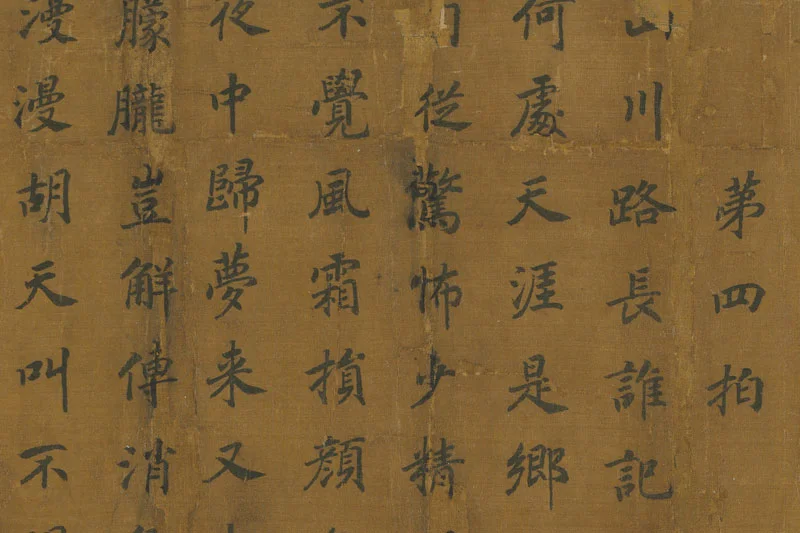 第四拍
山川路長誰記
何處天涯是鄉
從驚怖少精
不覺風霜損顔
夜中歸夢来又
朦朧豈解傳消
漫漫胡天叫不